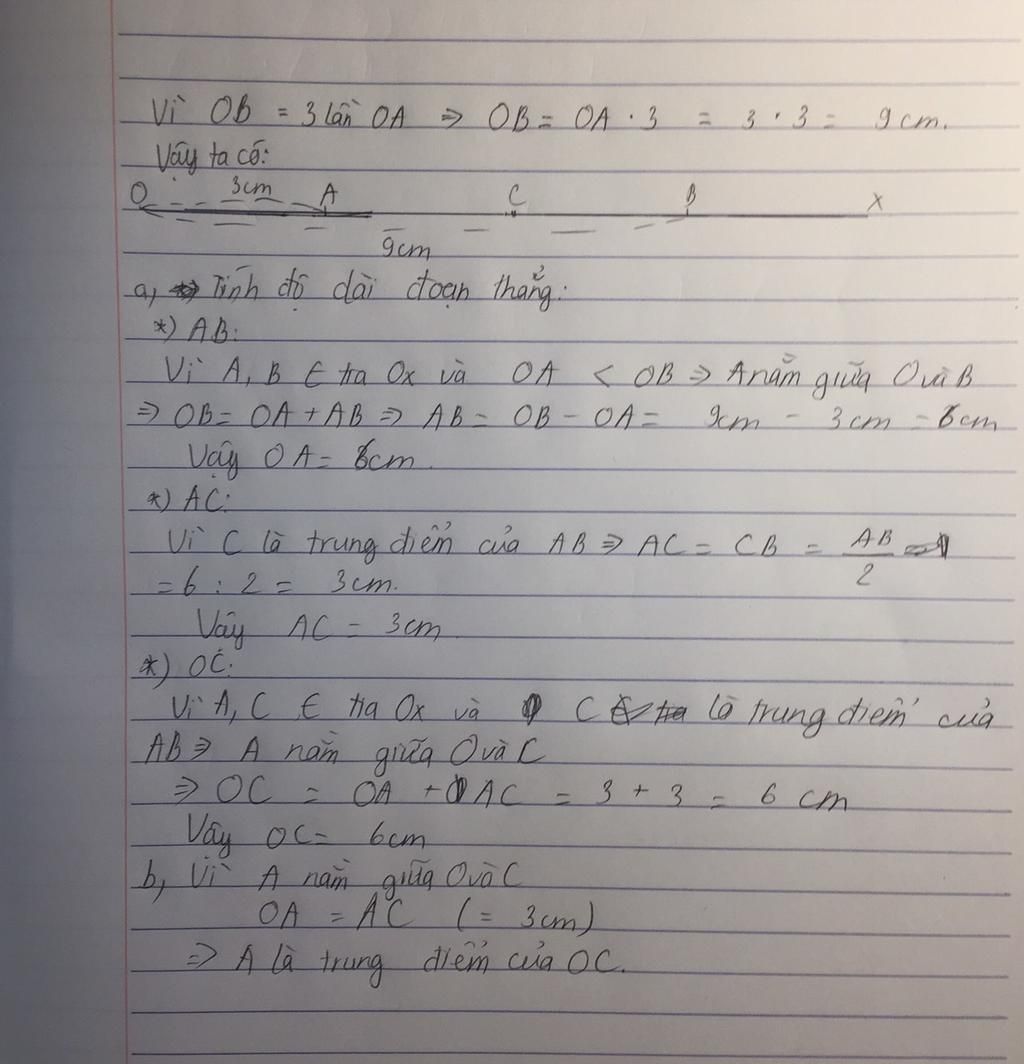 Vì OB = 3 lần OA => OB = OA . 3 = 3 . 3 = 9 cm.
Vậy ta có:
O 3cm A C B x
9cm
a, Tính độ dài đoạn thẳng:
*) AB:
Vì A, B ∈ tia Ox và OA < OB => A nằm giữa O và B
=> OB = OA + AB => AB = OB - OA = 9cm - 3cm = 6cm
Vậy OA = 6cm.
*) AC:
Vì C là trung điểm của AB => AC = CB = AB/2
= 6 : 2 = 3cm.
Vậy AC = 3cm
*) OC:
Vì A, C ∈ tia Ox và C là trung điểm của
AB => A nằm giữa O và C
=> OC = OA + AC = 3 + 3 = 6 cm
Vậy OC = 6cm
b, Vì A nằm giữa O và C
OA = AC ( = 3cm)
=> A là trung điểm của OC.